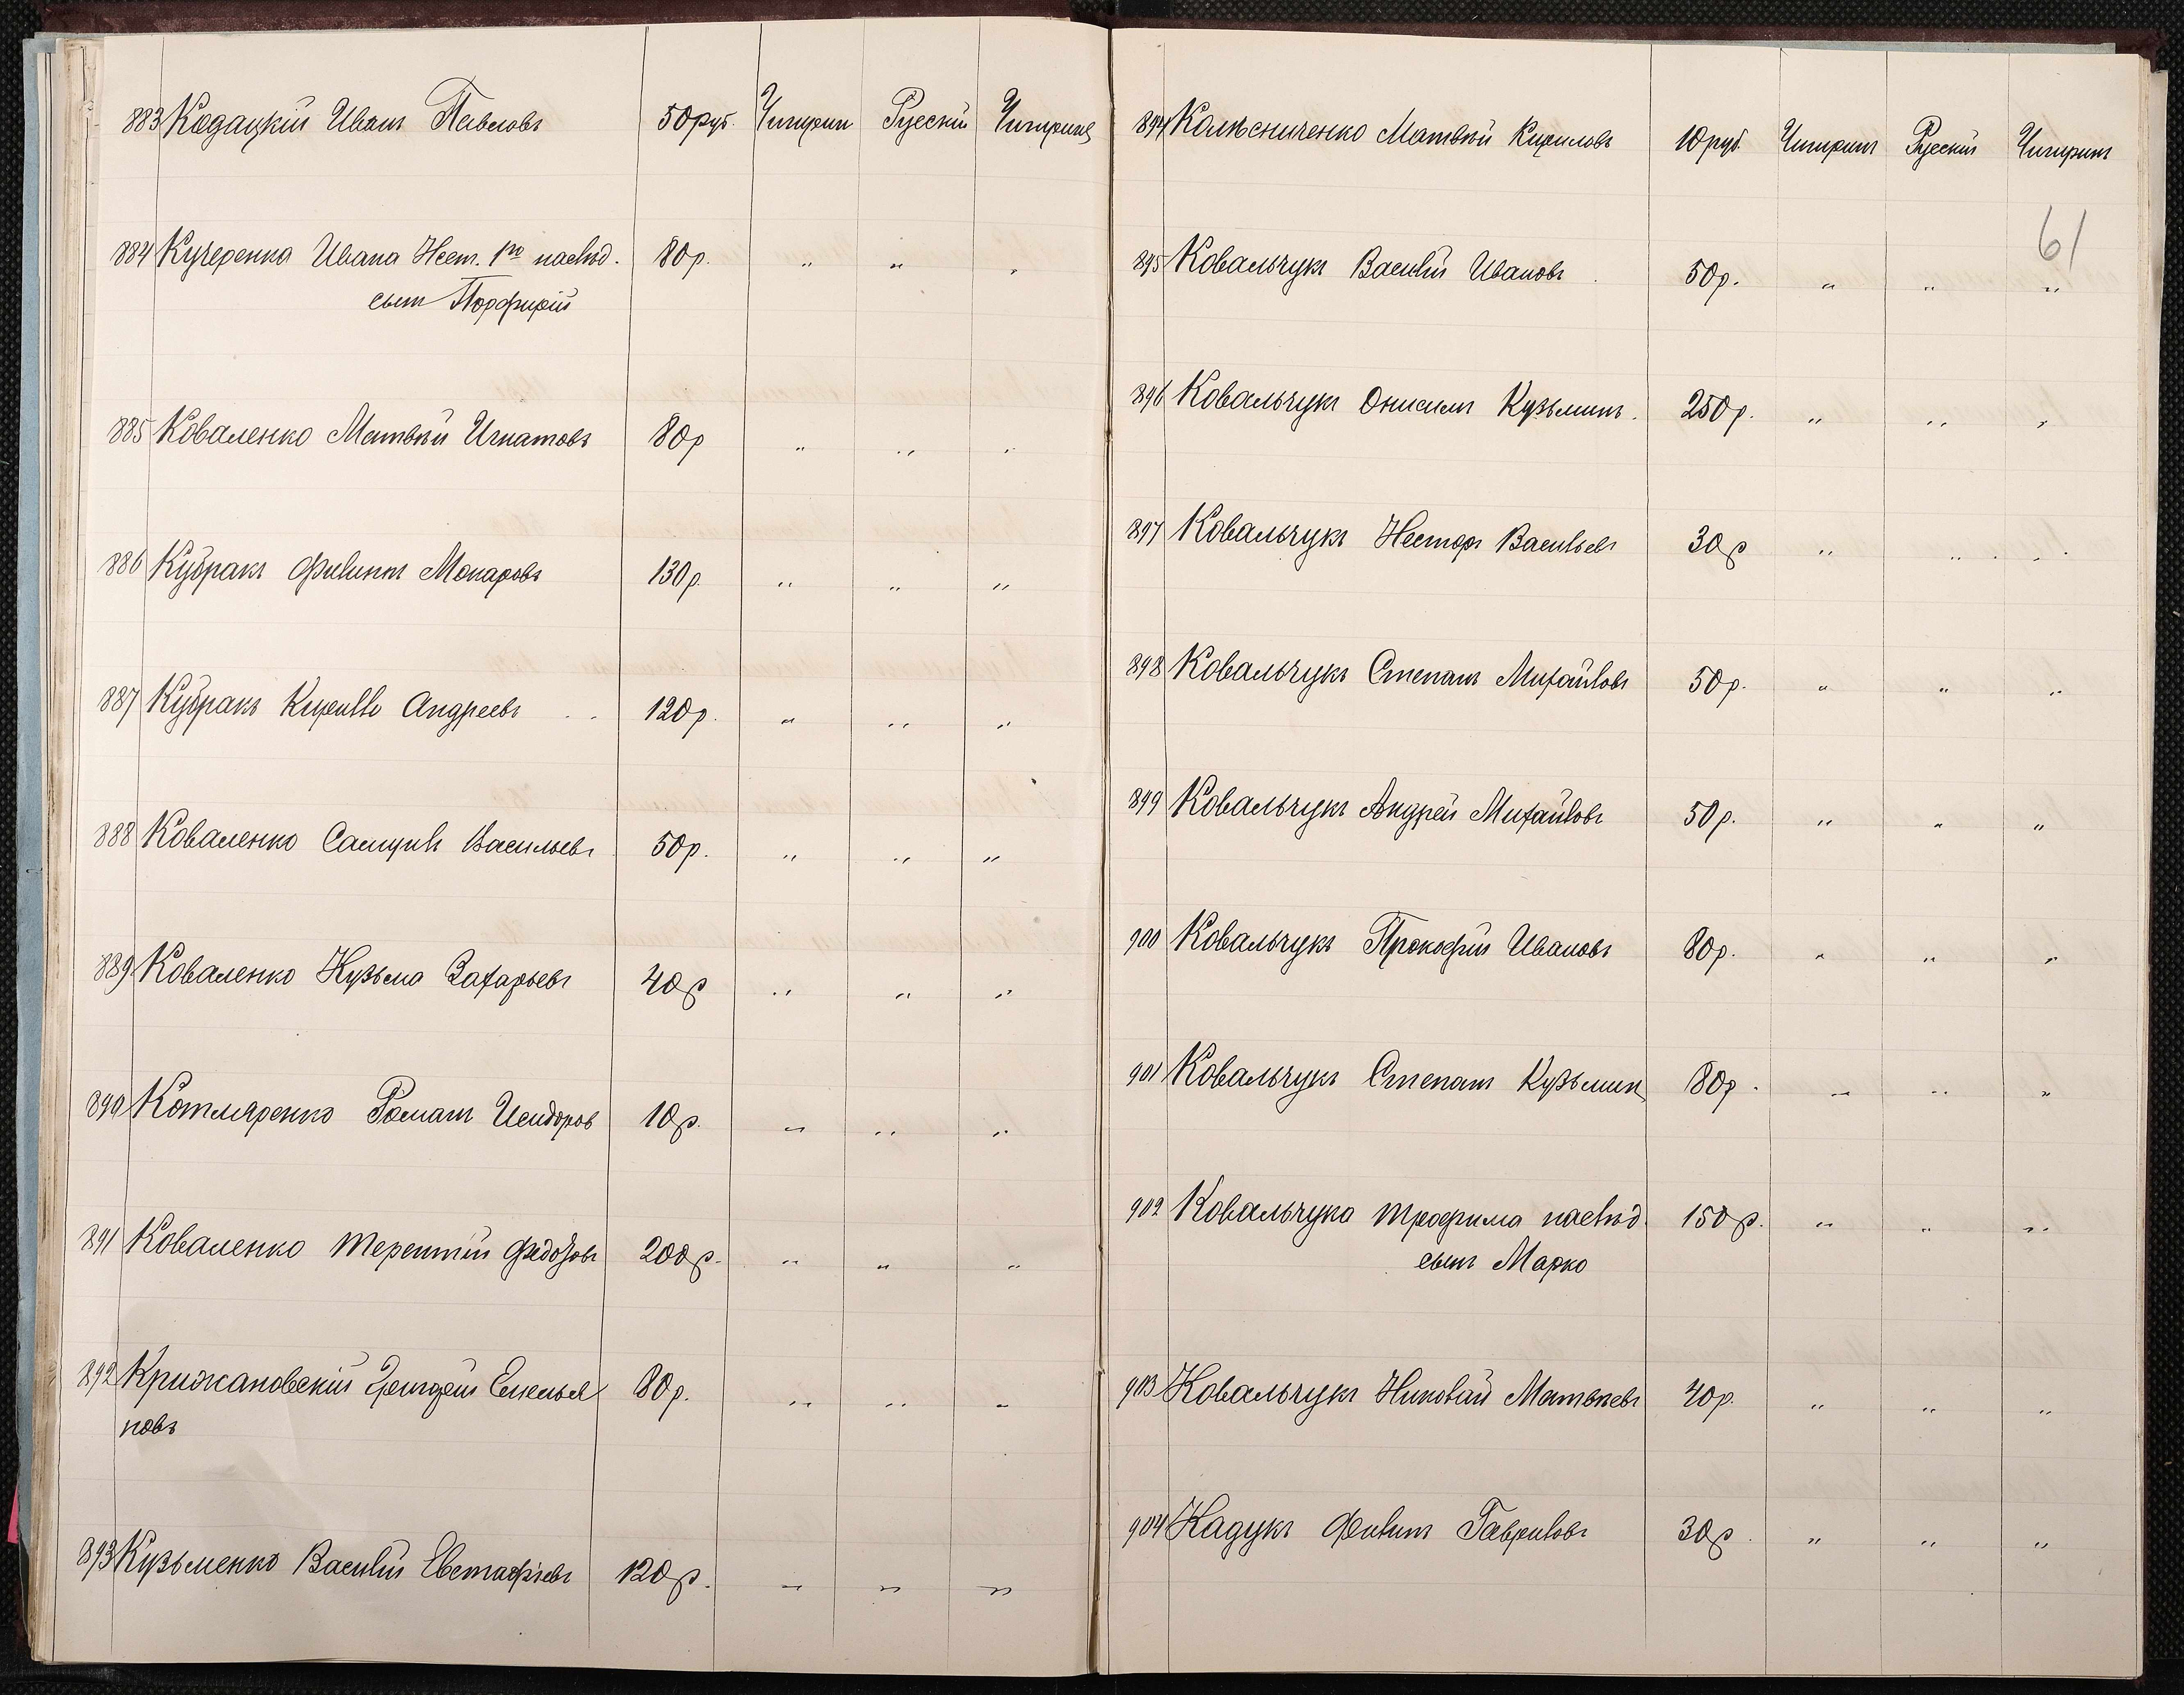 883 Кодацкій Иванъ Павловъ 50 руб. Чигирин Русскій Чигиринѣ
884 Кучеренка Ивана Нест. наслѣд. 80 р. „ „ „
сынъ Порфирій
885 Коваленко Матвѣй Игнатовъ 80 р „ „ „
886 Кубракъ Филиппъ Макаровъ 130 р. „ „ „
887 Кубракъ Кирилло Андреевъ 120 р. „ „ „
888 Коваленко Самуилъ Васильевъ 50 р. „ „ „
889 Коваленко Кузьма Захарьевъ 40 р „ „ „
890 Котляренко Романъ Исидоров 10 р. „ „ „
891 Коваленко Терентій Федоровъ 200 р. „ „ „
892 Крижановскій Емелья 80 р. „ „ „
новъ
893 Кузьменко Василій Евстафіевъ 120 р. „ „ „
894 Колѣсниченко Матвѣй Кириловъ 10 руб. Чигиринъ Русскій Чигиринъ
61
895 Ковальчукъ Василій Ивановъ 50 р. „ „ „
896 Ковальчукъ Онисимъ Кузьминъ. 250 р. „ „ „
897 Ковальчукъ Несторъ Васильевъ 30 р „ „ „
898 Ковальчукъ Степанъ Михайловъ 50 р. „ „ „
899 Ковальчукъ Андрей Михайловъ 50 р. „ „ „
900 Ковальчукъ Прокофій Ивановъ 80 р. „ „ „
901 Ковальчукъ Степанъ Кузьмин 80 р. „ „ „
902 Ковальчука Трофима наслѣд. 150 р. „ „ „
сынъ Марко
903 Ковальчукъ Николай Матвѣевъ 40 р. „ „ „
904 Кадукъ Филипъ Гавриловъ 30 р. „ „ „